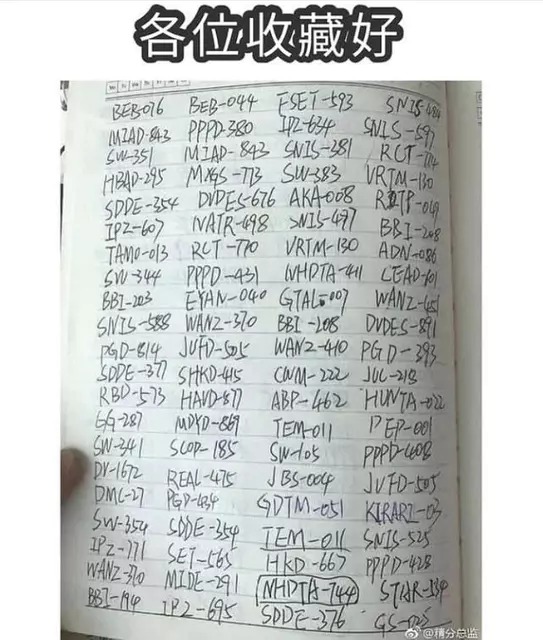 各位收藏好
BEB-016 BEB-044 ESET-593 SNIS-484
MIAD-843 PPPD-380 IPZ-634 SNIS-597
SW-351 MIAD-843 SNIS-381 RCT-774
HBAD-295 MXGS-773 SW-383 VRTM-130
SDDE-354 DVDES-676 AKA-008 RTP-049
IPZ-607 NATR-498 SNIS-497 BBI-208
TAMO-013 RCT-770 VRTM-130 ADN-086
SW-344 PPPD-431 NHDTA-411 CEAD-101
BBI-203 EYAN-040 GTAL-007 WANZ-451
SNIS-588 WANZ-370 BBI-208 DVDES-891
PGD-814 JUFD-505 WANZ-410 PGD-393
SDDE-377 SHKD-415 CWM-222 JUC-218
RBD-573 HAVD-877 ABP-462 HUNTA-022
GG-287 MDYD-869 TEM-011 PEP-001
SW-341 SCOP-185 SW-105 PPPD-408
DV-1672 REAL-475 JBS-004 JUFD-505
DMC-27 PGD-434 GDTM-051 KIRARI-03
SW-354 SDDE-354 TEM-011 SNIS-525
IPZ-771 SET-565 HKD-667 PPPD-428
WANZ-370 MIDE-291 NHDTA-744 STAR-334
BBI-194 IPZ-695 SDDE-376
@精分总监